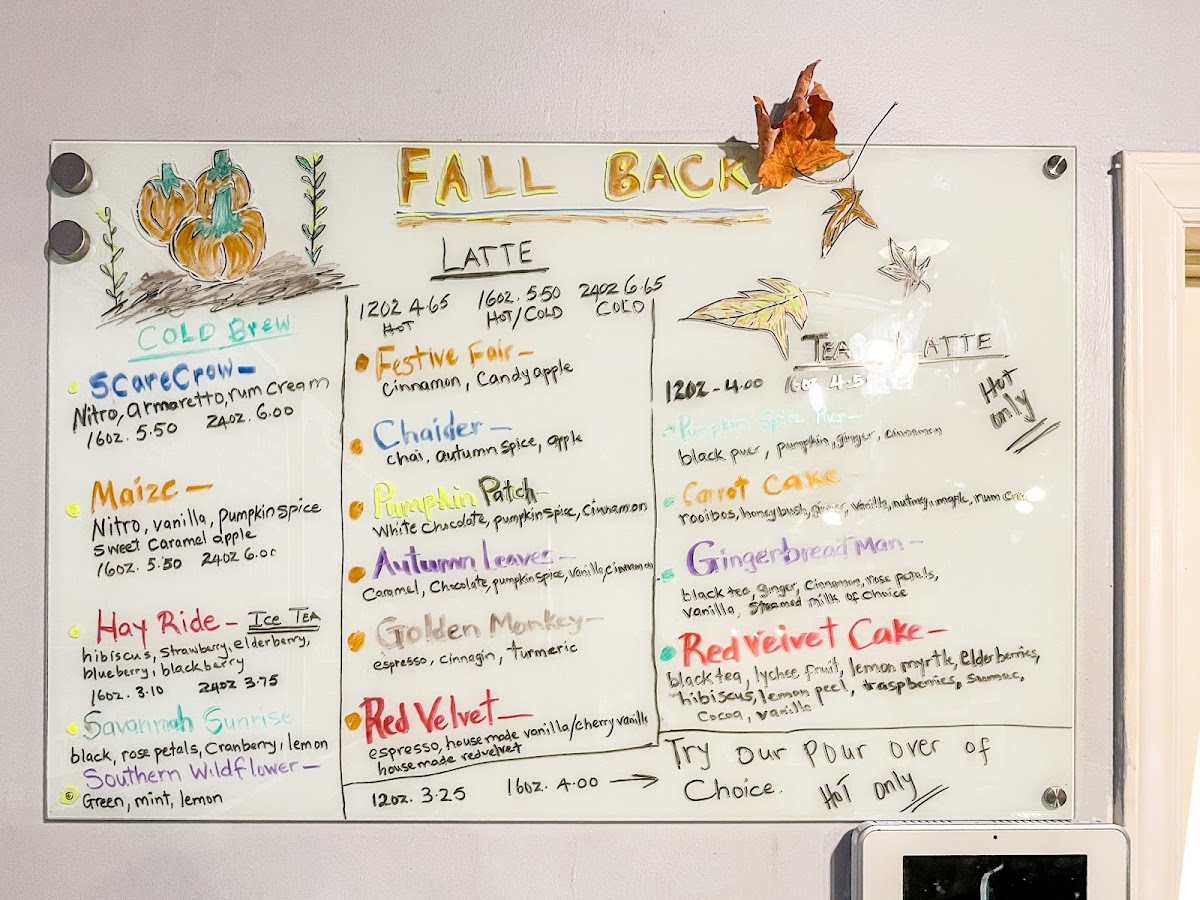 FALL BACK
COLD BREW
SCareCrow—
Nitro, armaretto, rum cream
16oz. 5.50 24oz 6.00
Maize—
Nitro, vanilla, pumpkin spice
sweet caramel apple
16oz. 5.50 24oz 6.00
Hay Ride— ICE TEA
hibiscus, strawberry, elderberry,
blueberry, blackberry
16oz. 3.10 24oz 3.75
Savannah Sunrise
black, rose petals, Cranberry, lemon
Southern Wildflower—
Green, mint, lemon
LATTE
12oz 4.65 16oz. 5.50 24oz 6.65
HOT HOT/COLD COLD
Festive Fair—
Cinnamon, Candy apple
Chaider—
chai, autumn spice, apple
Pumpkin Patch—
White chocolate, pumpkin spice, Cinnamon
Autumn Leaves—
Caramel, Chocolate, pumpkin spice, vanilla, cinnamon
Golden Monkey—
espresso, cinnagin, turmeric
Red Velvet—
espresso, house made vanilla/cherry vanilla
house made redvelvet
TEA LATTE
12oz - 4.00 16oz 4.5
Hot
only
Pumpkin Spice Puer—
black puer, pumpkin, ginger, cinnamon
Carrot Cake
rooibos, honeybush, ginger, vanilla, nutmeg, maple, rum
Gingerbread Man—
black tea, ginger, cinnamon, rose petals,
vanilla, steamed milk of choice
Red Velvet Cake—
black tea, lychee fruit, lemon myrtle, elderberries,
hibiscus, lemon peel, raspberries, sumac,
Cocoa, vanilla
12oz. 3.25 16oz. 4.00 →
Try our Pour over of
Choice. HOT only